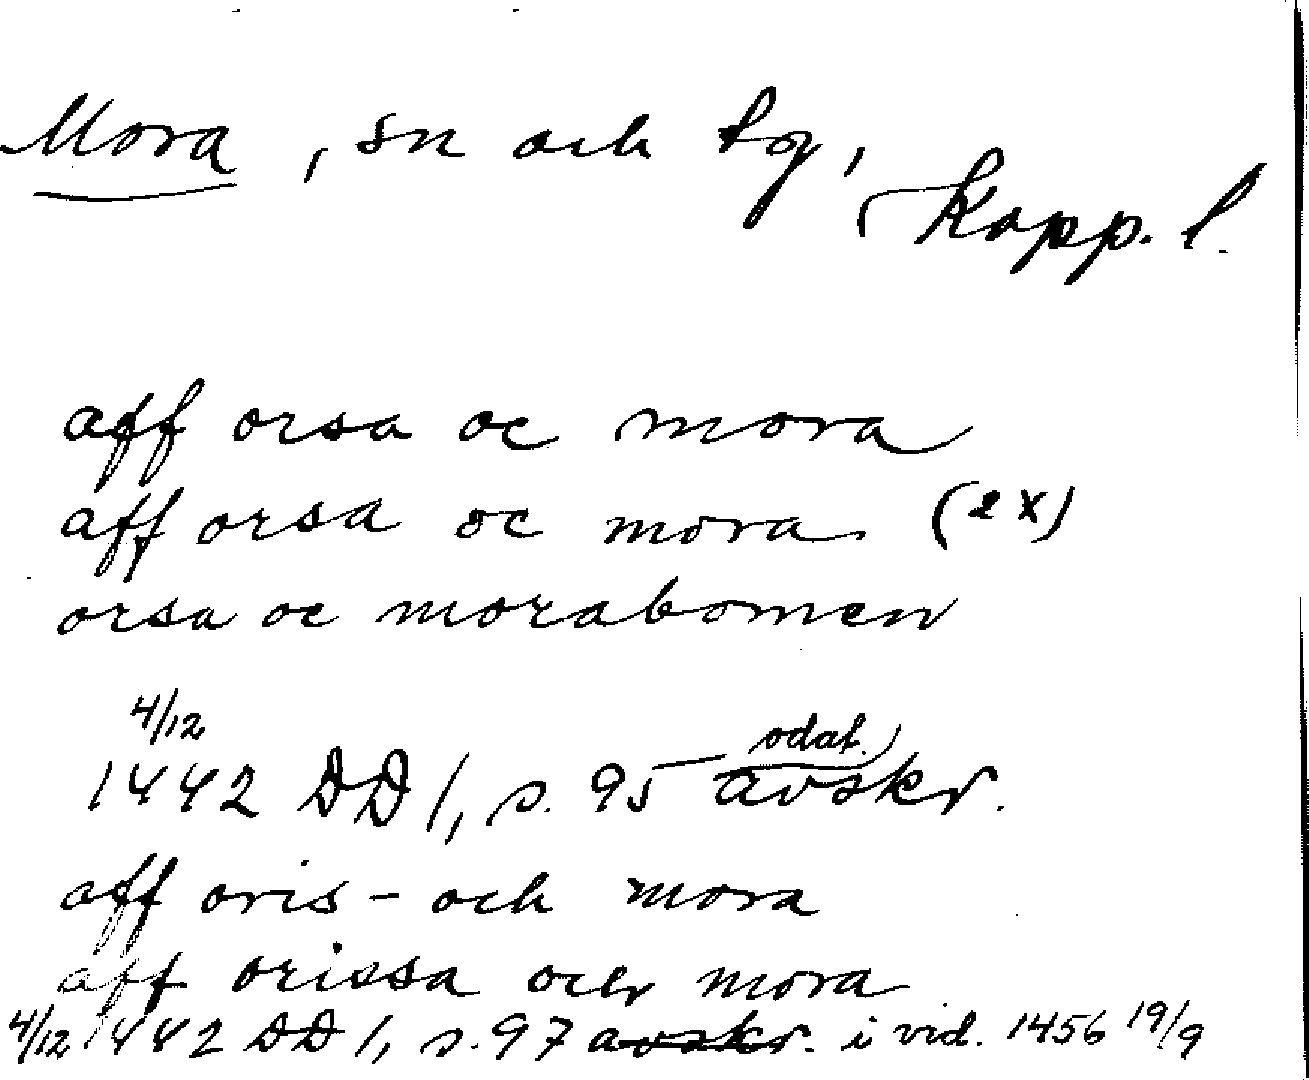 Mora, sn och tg,
Kopp. l.
aff orsa oc mora
aff orsa oc mora (2 x)
orsa oc morabomen
4/12
odat.
1442 DD 1, s. 95 avskr.
aff oris - och mora
aff orissa och mora
4/12 1442 DD 1, s. 97 avskr. i vid. 1456 19/9